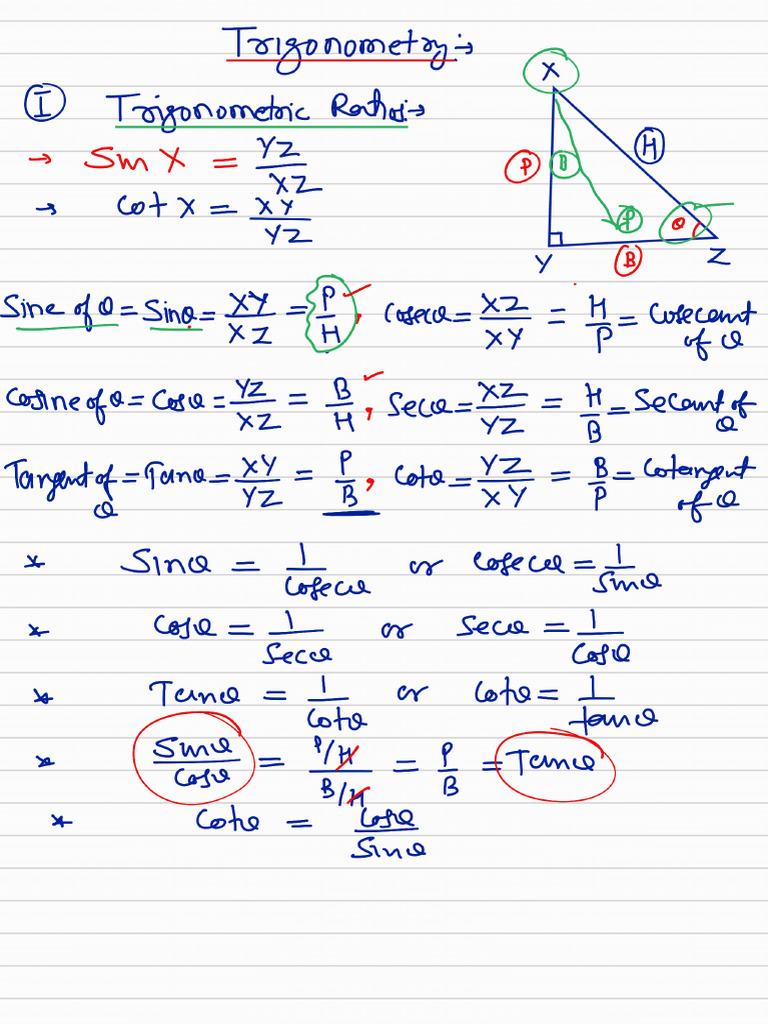 Trigonometry:→
I Trigonometric Ratios:→
→ Sin X = YZ/XZ
→ Cot X = XY/YZ
X
P B H
P θ
Y B Z
Sine of θ = Sinθ = XY/XZ = P/H, Cosecθ = XZ/XY = H/P = Cosecant of θ
Cosine of θ = Cosθ = YZ/XZ = B/H, Secθ = XZ/YZ = H/B = Secant of θ
Tangent of θ = Tanθ = XY/YZ = P/B, Cotθ = YZ/XY = B/P = Cotangent of θ
* Sinθ = 1/Cosecθ or Cosecθ = 1/Sinθ
* Cosθ = 1/Secθ or Secθ = 1/Cosθ
* Tanθ = 1/Cotθ or Cotθ = 1/tanθ
* Sinθ/Cosθ = P/H / B/H = P/B = Tanθ
* Cotθ = Cosθ/Sinθ